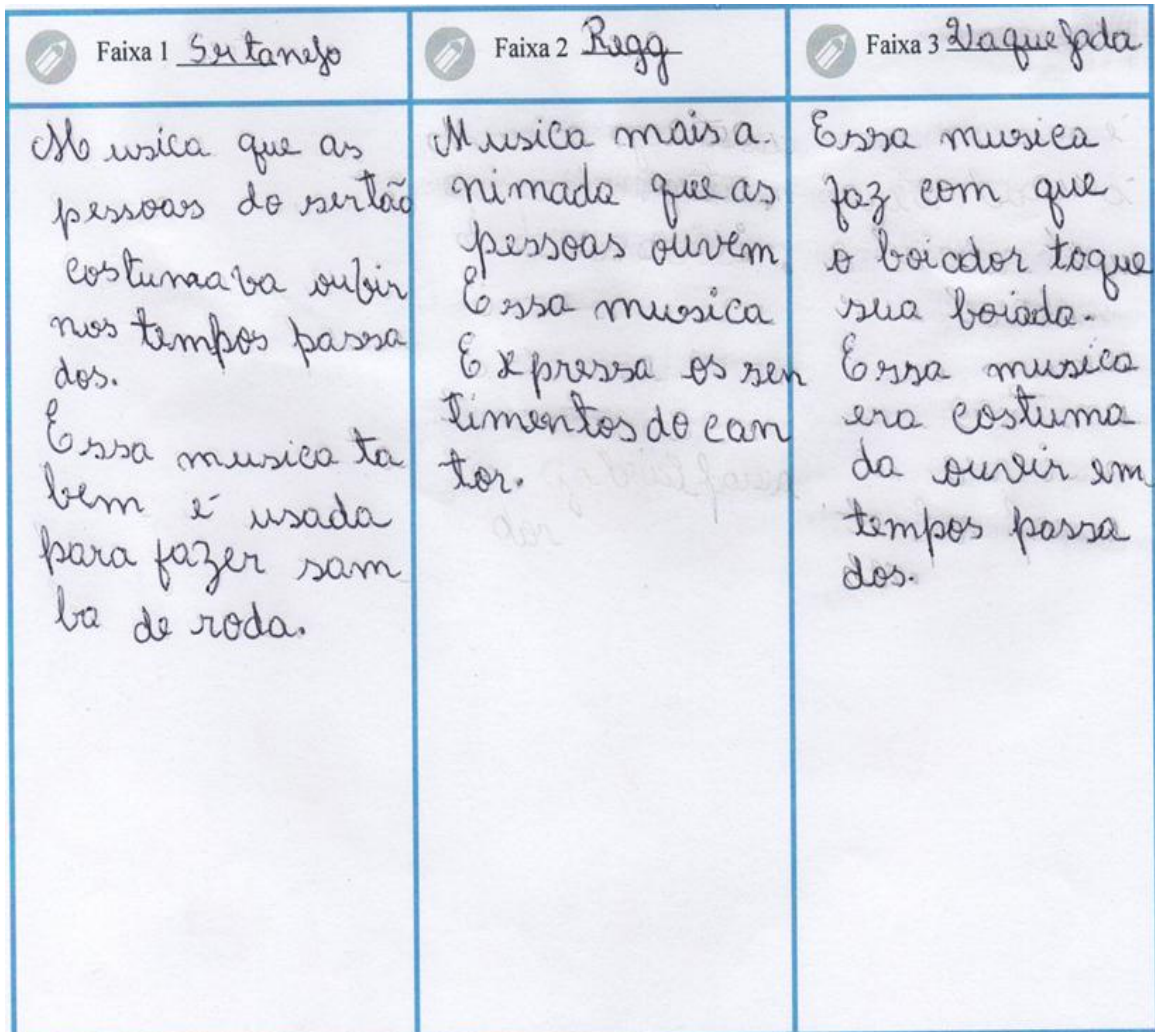 Faixa 1 Sertanejo
Musica que as
pessoas do sertão
costumava oubir
nos tempos passa
dos.
Essa musica ta
bem é usada
para fazer sam
ba de roda.
Faixa 2 Regg
Musica mais a
nimada que as
pessoas ouvem.
Essa musica
Expressa os sen
timentos do can
tor.
Faixa 3 Vaquejada
Essa musica
faz com que
o boiador toque
sua boiada.
Essa musica
era costuma
da ouvir em
tempos passa
dos.